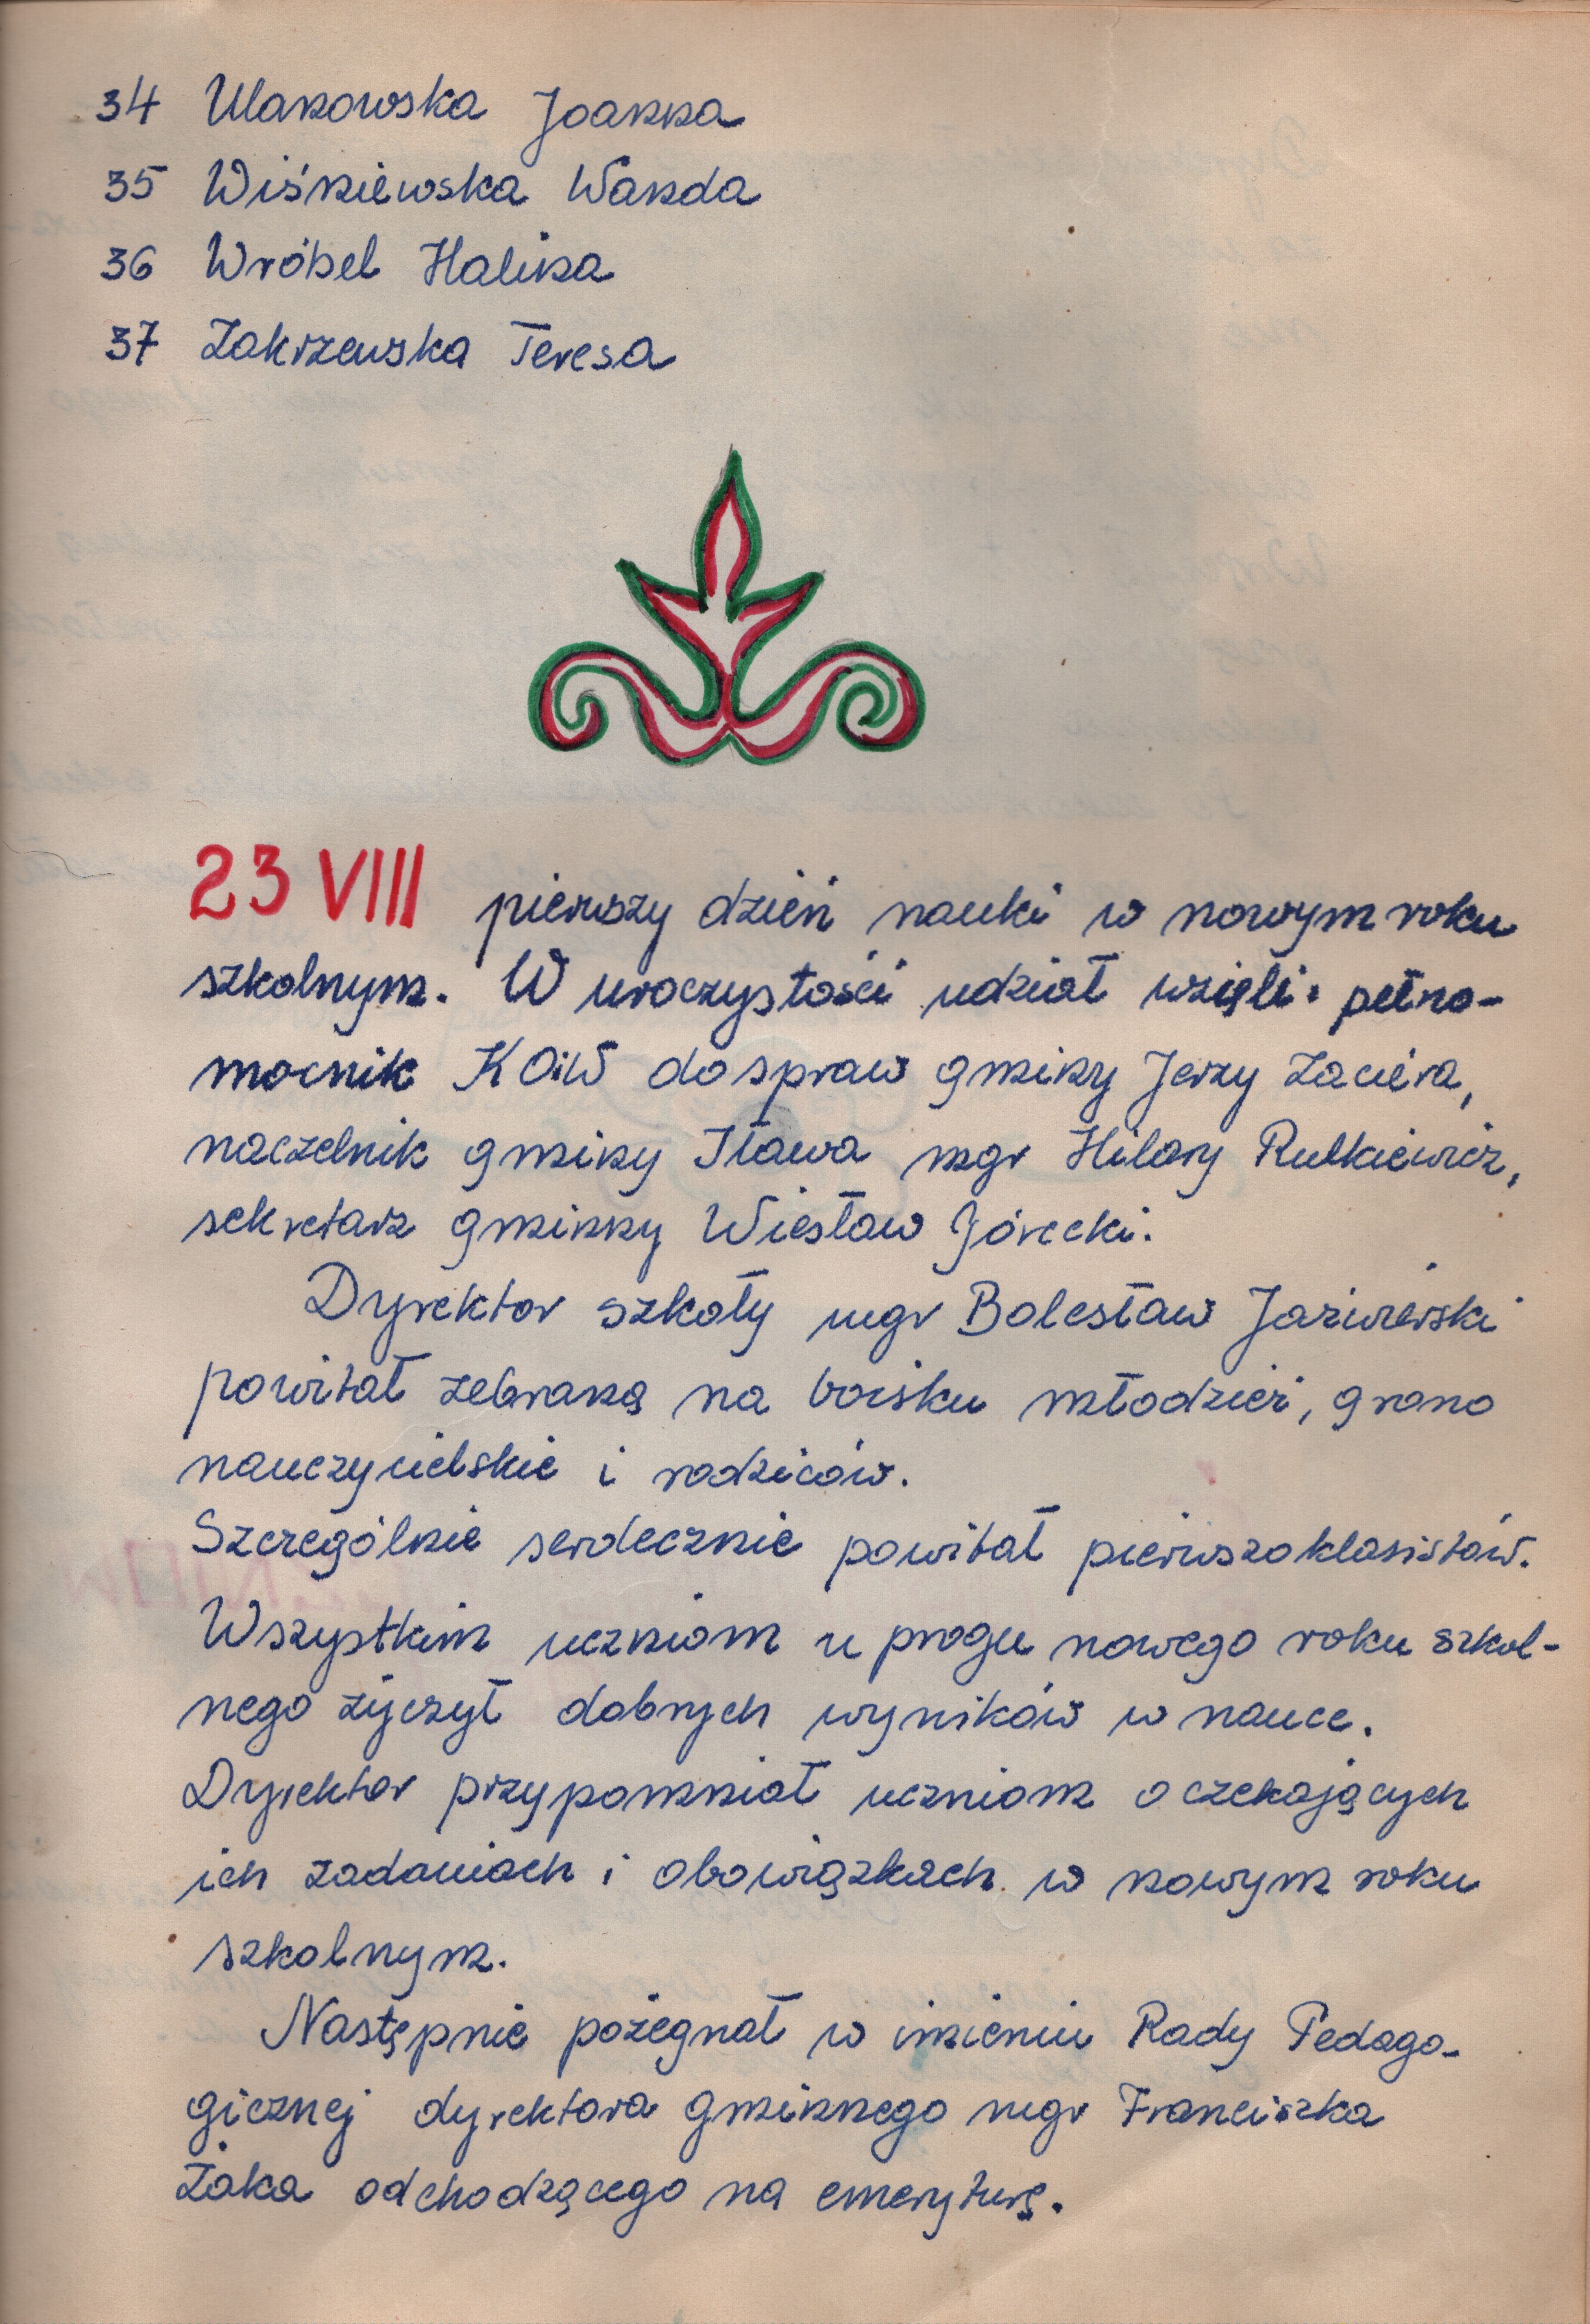 34 Ulanowska Joanna
35 Wiśniewska Wanda
36 Wróbel Halina
37 Zakrzewska Teresa
23 VIII pierwszy dzień nauki w nowym roku
szkolnym. W uroczystości udział wzięli: pełno-
mocnik KOiW do spraw gminy Jerzy Zaciera,
naczelnik gminy Iława mgr Hilary Rutkiewicz,
sekretarz gminny Wiesław Jórecki.
Dyrektor szkoły mgr Bolesław Jaźwierski
powitał zebraną na boisku młodzież, grono
nauczycielskie i rodziców.
Szczególnie serdecznie powitał pierwszoklasistów.
Wszystkim uczniom u progu nowego roku szkol-
nego życzył dobrych wyników w nauce.
Dyrektor przypomniał uczniom o czekających
ich zadaniach i obowiązkach w nowym roku
szkolnym.
Następnie pożegnał w imieniu Rady Pedago-
gicznej dyrektora gminnego mgr Franciszka
Żaka odchodzącego na emeryturę.